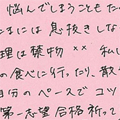 悩んでしまうこともた
たまには息抜きしな
理は禁物 ×× 私し
の食べに行ったり、散
自分のペースでコツ
第一志望合格祈って